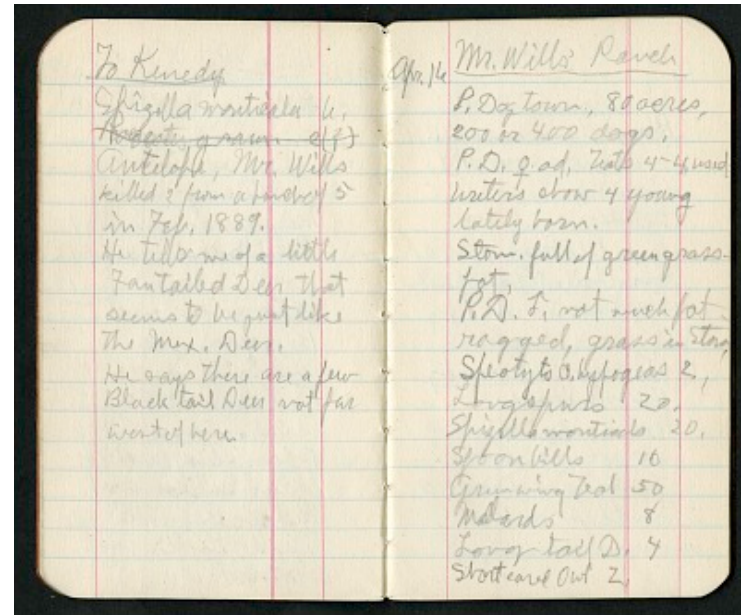 To Kenedy
Spizella monticola 6.
Antelope, Mr. Wills
killed 2 from a bunch of 5
in Feb. 1889.
He tells me of a little
Fantailed Deer that
seems to be just like
the Mex. Deer.
He says there are a few
Black tail Deer not far
west of here.
Apr. 14
Mr. Wills Ranch
P. Dog town, 80 acres,
200 or 400 dogs.
P.D. ♀ ad. Teats 4-4, used
Uteris show 4 young
lately born.
Stom. full of green grass-
fat.
P.D. not much fat
ragged, grass in Stom.
Speotyto C. hypogeas 2,
Longspurs 20.
Spizella monticola 20.
Spoonbills 10
Teal 50
Malards 8
Long tail D. 4
Short eared Owl 2